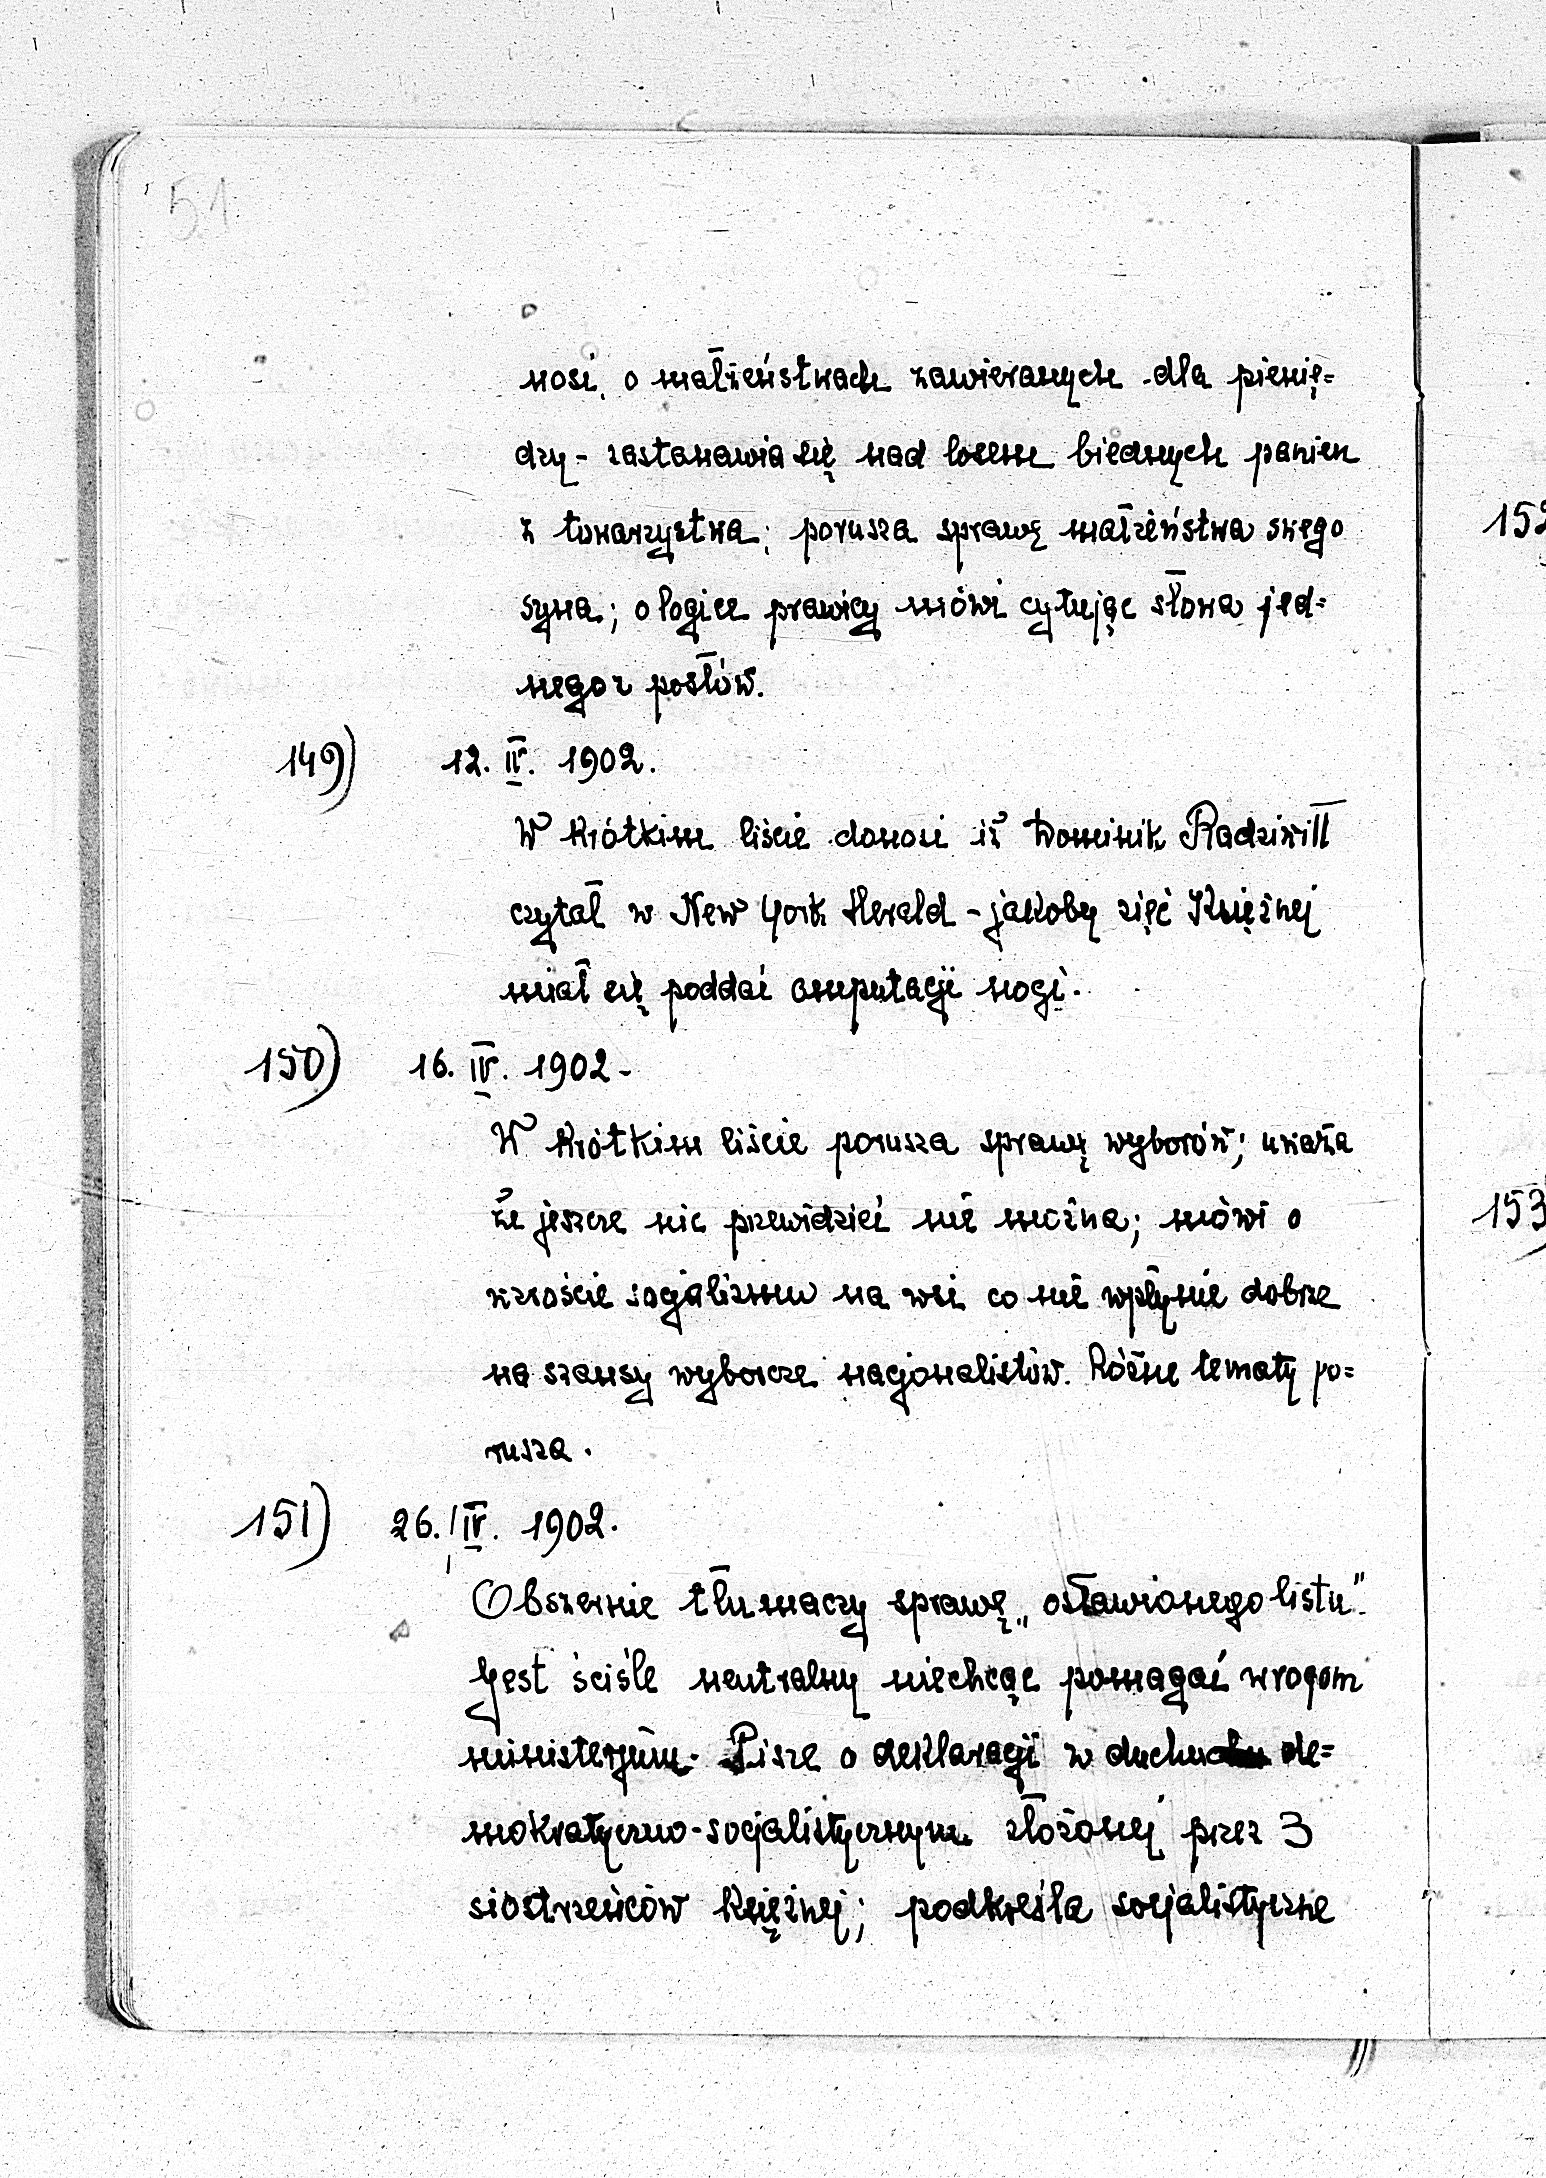 51
nosi, o małżeństwach zawieranych dla pienię=
dzy - zastanawia się nad losem biednych panien
z towarzystwa; porusza sprawę małżeństwa swego
syna; o logice prawicy mówi cytując słowa jed=
nego z posłów.
149) 12. IV. 1902.
W krótkim liście donosi iż Dominik Radziwiłł
czytał w New York Herald - jakoby zięć Księżnej
miał się poddać amputacji nogi.
150) 16. IV. 1902.
W krótkim liście porusza sprawę wyborów; uważa
że jeszcze nic przewidzieć nie można; mówi o
wzroście socjalizmu na wsi co nie wpłynie dobrze
na szansy wyborcze nacjonalistów. Różne tematy po=
rusza.
151) 26. IV. 1902.
Obszernie tłumaczy sprawę „osławionego listu".
Jest ściśle neutralny niechcąc pomagać wrogom
ministerjum. Pisze o deklaracji w duchu de=
mokratyczno-socjalistycznym złożonej przez 3
siostrzeńców Księżnej; podkreśla socjalistyczne
152
153